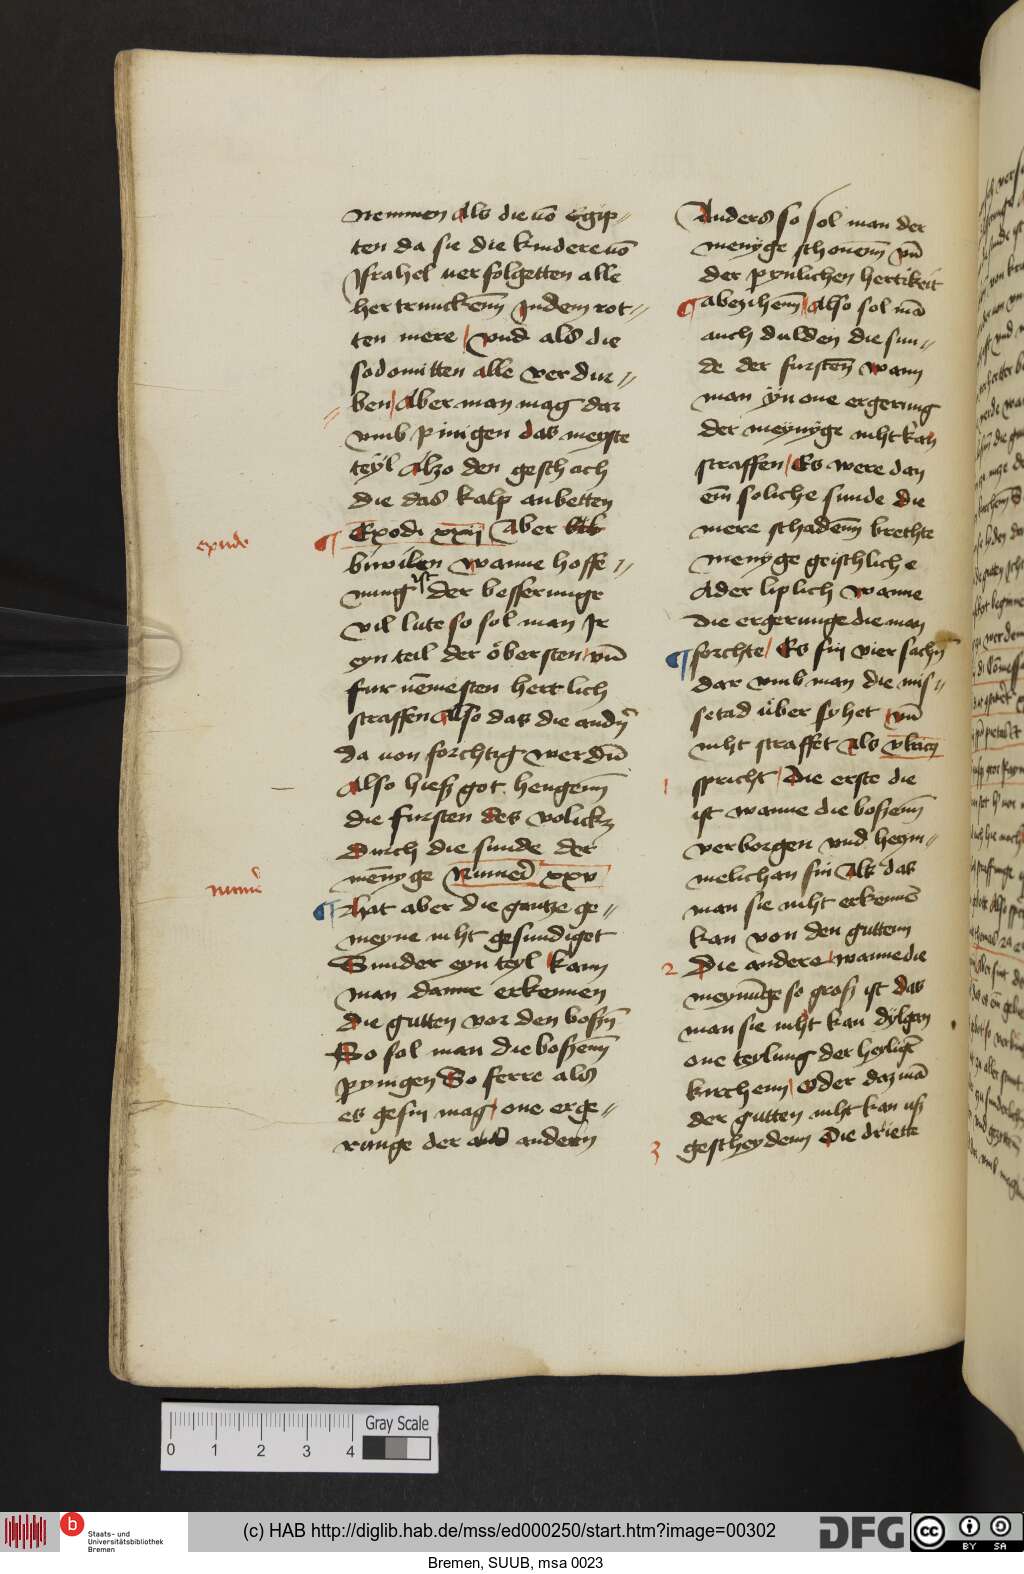 nemmen Als die vō Egip//
ten da sie die kindere vō
Israhel verfolgetten alle
hertrunckenn Indem rot//
ten mere / vnd als die
sodomitten alle verdur//
ben / Aber man mag dar
vmb pinigen das meyste
teyl Alzo den geschach
die das kalp anbetten
exode
¶ Exodi xxxij Aber
biwilen wanne hoffe//
nung ist der besserunge
vil lute so sol man Ir
eyn teil der öbersten / vn̄
fur nēmesten hertlich
straffen Also das die andn̄
da von forchtig werdn̄
Also hieß got hengenn
die fursten des volickz
Durch die sunde der
menyge Numeri xxv
numeri
¶ hat aber die gantze ge//
meyne niht gesundiget
Sunder eyn teyl / kann
man danne erkennen
die gutten vor den boßn̄
So sol man die boßenn
pynigen So ferre als
es gesin mag / one erge//
runge der andern
Anders so sol man der
menyge schonenn vn̄
der pynlichen hertikeit
¶ abezihenn / Also sol mā
auch dulden die sun//
de der furstenn wann
man yn one ergerung
der meynyge niht kan
straffen / Es were dan
ein soliche sunde die
mere schadenn brechte
menyge geistlich e
Ader liplich wanne
die ergerunge die man
¶ forchte / Es sin vier sachn̄
dar vmb man die mis//
setad über syhet / vn̄
niht straffet Als vlricus
1 spricht / Die erste die
ist wanne die boßenn
verborgen vnd heym//
melichan sin Als das
man sie niht erkennē
kan von den guttenn
2 Die andere / wanne die
meynunge so groß ist das
man sie niht kan dylgan
one teylung der heyligē
kirchenn / oder daz mā
der gutten niht kan uß
3 gescheydenn Die driette
0 1 2 3 4
Gray Scale
b
Staats- und
Universitätsbibliothek
Bremen
(c) HAB http://diglib.hab.de/mss/ed000250/start.htm?image=00302
DFG
cc BY SA
Bremen, SUUB, msa 0023